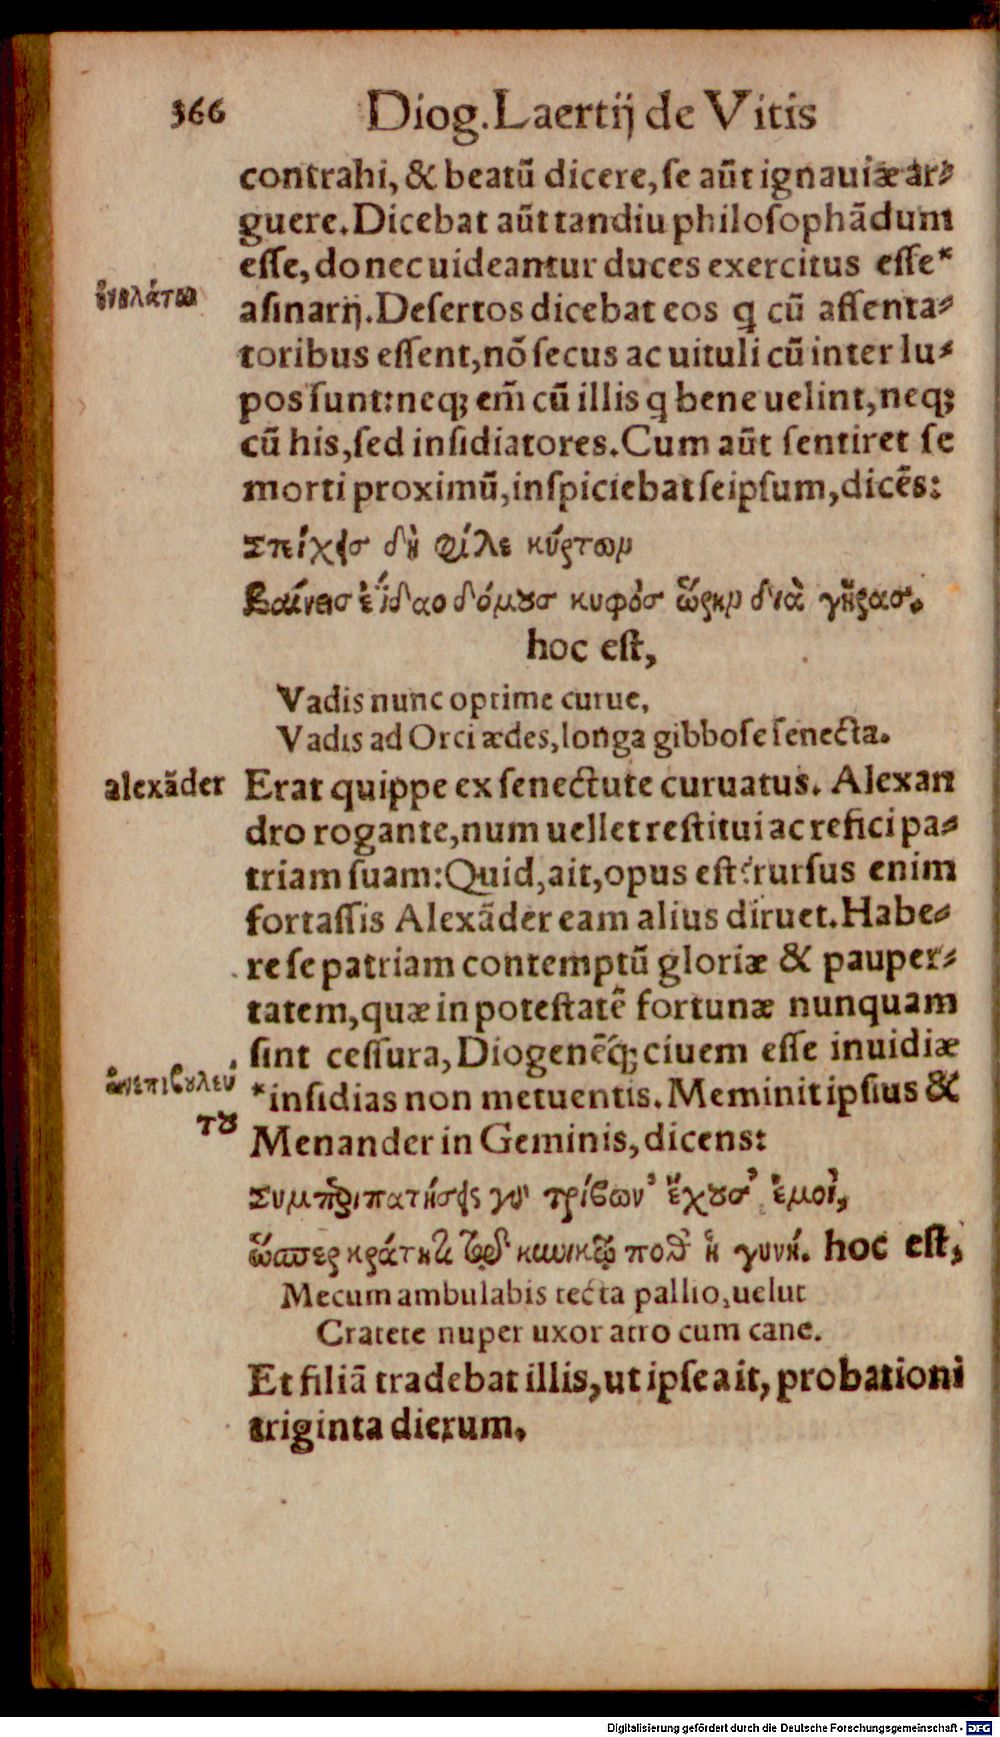 366 Diog. Laertij de Vitis
contrahi, & beatū dicere, se aūt ignauiæ ar-
guere. Dicebat aūt tandiu philosophādum
esse, donec uideantur duces exercitus esse*
asinarij. Desertos dicebat eos q cū assenta-
toribus essent, nō secus ac uituli cū inter lu-
pos sunt: neq; em̄ cū illis q bene uelint, neq;
cū his, sed insidiatores. Cum aūt sentiret se
morti proximū, inspiciebat seipsum, dicēs:
Στείχεισ δὴ φίλε κύρτωμ
Βαίνεισ εἰς ἀΐδαο δόμουσ κυφὸσ ὥρημ διὰ γῆρασ.
hoc est,
Vadis nunc optime curue,
Vadis ad Orci ædes, longa gibbose senecta.
alexāder
Erat quippe ex senectute curuatus. Alexan
dro rogante, num uellet restitui ac refici pa-
triam suam: Quid, ait, opus est? rursus enim
fortassis Alexāder eam alius diruet. Habe-
re se patriam contemptū gloriæ & pauper-
tatem, quæ in potestatē fortunæ nunquam
sint cessura, Diogenēq; ciuem esse inuidiæ
ἀνεπιβουλευ
του
*insidias non metuentis. Meminit ipsius &
Menander in Geminis, dicens:
Συμπεριπατήσεις γὰρ τρίβων' ἔχουσ' ἐμοὶ,
ὥσπερ κράτητι τῷ κυνικῷ ποθ' ἡ γυνή. hoc est,
Mecum ambulabis tecta pallio, uelut
Cratete nuper uxor atro cum cane.
Et filiā tradebat illis, ut ipse ait, probationi
triginta dierum.
Digitalisierung gefördert durch die Deutsche Forschungsgemeinschaft - DFG